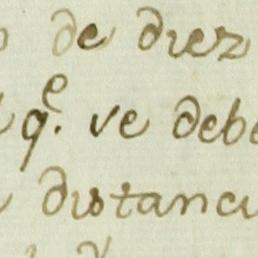 de diez
q.^e ve debe
distanci